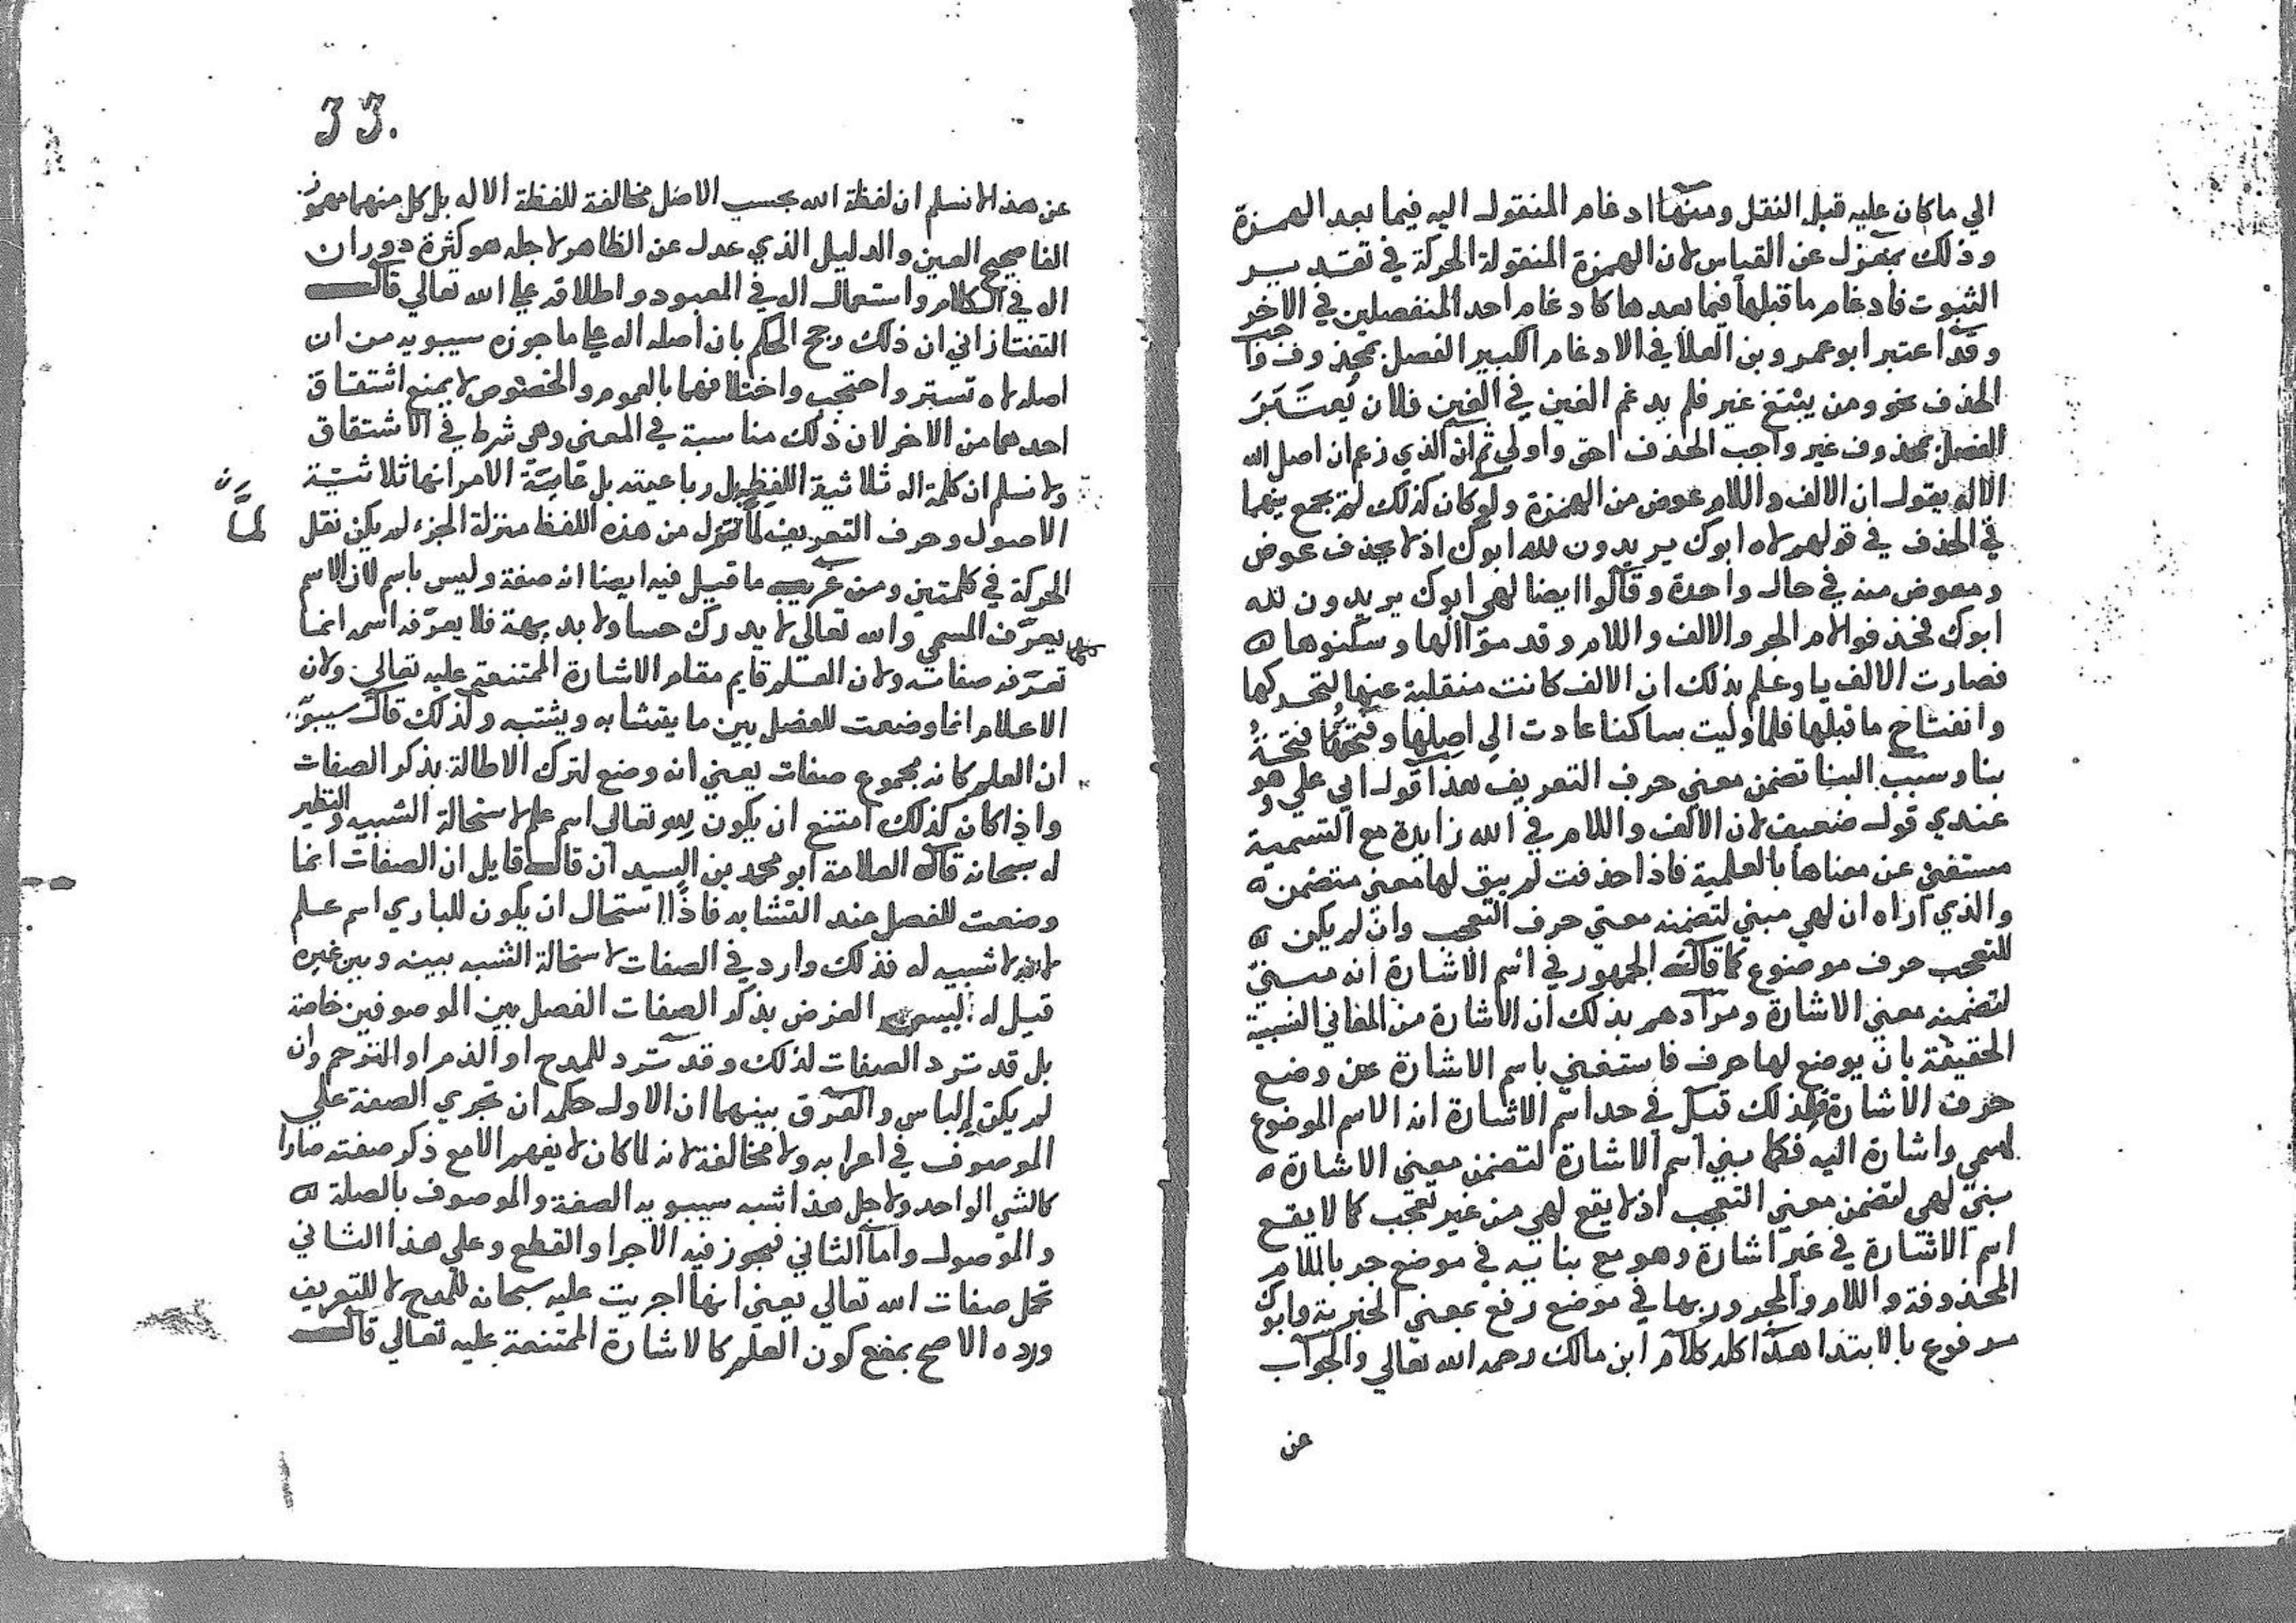 الي ما كان عليه قبل النقل ومنها ادغام المنقول اليه فيما بعد الهمزة
وذلك بمعزل عن القياس لان الهمزة المنقولة الحركة في تقدير
الثبوت فادغام ما قبلها فيما بعدها كادغام احد المنفصلين في الاخر
وقد اعتبر ابو عمرو بن العلا في الادغام الكبير الفصل بمحذوف واجب
الحذف نحو ومن يبتغ غير فلم يدغم الغين في الغين فلان يعتبر
الفصل بمحذوف غير واجب الحذف احق واولي ثم ان الذي زعم ان اصل الله
الاله يقول ان الالف واللام عوض من الهمزة ولو كان كذلك لم يجمع بينهما
في الحذف في قولهم لاه ابوك يريدون لله ابوك اذ لا يحذف عوض
ومعوض منه في حال واحدة وقالوا ايضا لهي ابوك يريدون لله
ابوك فحذفوا لام الجر والالف واللام وقدموا الها وسكنوها
فصارت الالف يا وعلم بذلك ان الالف كانت منقلبة عنها لتحركها
وانفتاح ما قبلها فلما وليت ساكنا عادت الي اصلها وفتحتها فتحة
بنا وسبب البنا تضمن معني حرف التعريف هذا قول ابي علي وهو
عندي قول ضعيف لان الالف واللام في الله زايدة مع التسمية
مستغني عن معناها بالعلمية فاذا حذفت لم يبق لها معني متضمن
والذي اراه ان لهي مبني لتضمنه معني حرف التعجب وان لم يكن
للتعجب حرف موضوع كما قال الجمهور في اسم الاشارة انه مبني
لتضمنه معني الاشارة ومرادهم بذلك ان الاشارة من المعاني النسبية
الحقيقة بان يوضع لها حرف فاستغني باسم الاشارة عن وضع
حرف الاشارة فلذلك قيل في حد اسم الاشارة انه الاسم الموضوع
لمسمي واشارة اليه فكما بني اسم الاشارة لتضمن معني الاشارة
بني لهي لتضمن معني التعجب اذ لا يقع لهي من غير تعجب كما لا يقع
اسم الاشارة في غير اشارة وهو مع بنائه في موضع جر باللام
المحذوفة واللام والمجرور بها في موضع رفع بمعني الخبرية وابوك
مرفوع بالابتدا هذا كله كلام ابن مالك رحمه الله تعالي والجواب
عن
33.
عن هذا لا نسلم ان لفظة الله بحسب الاصل مخالفة للفظة الاله بل كل منهما مهموز
الفا صحيح العين والدليل الذي عدل عن الظاهر لاجله هو كثرة دوران
اله في الكلام واستعمال اله في المعبود واطلاقه علي الله تعالي قال
التفتازاني ان ذلك رجح الحكم بان اصله اله علي ما جوزه سيبويه من ان
اصله لاه تستر واحتجب واختلافهما بالعموم والخصوص لا يمنع اشتقاق
احدهما من الاخر لان ذلك مناسبة في المعني وهي شرط في الاشتقاق
ولا نسلم ان كلمة اله ثلاثية اللفظ بل رباعيته بل غاية الامر انها ثلاثية
الاصول وحرف التعريف لما تنزل من هذه اللفظ منزلة الجزء لم يكن نقل
لما
الحركة في كلمتين ومن غريب ما قيل فيه ايضا انه صفة وليس باسم لان الاسم
يعرف المسمي والله تعالي لا يدرك حسا ولا بديهة فلا يعرفه اسمه انما
تعرفه صفاته ولان العلم قايم مقام الاشارة الممتنعة عليه تعالي ولان
الاعلام انما وضعت للفصل بين ما يتشابه ويشتبه ولذلك قال سيبو
ان العلم كانه مجموع صفات يعني انه وضع لترك الاطالة بذكر الصفات
واذا كان كذلك امتنع ان يكون لله تعالي اسم علم لاستحالة الشبيه والنظير
له سبحانه قال العلامة ابو محمد بن السيد ان قال قايل ان الصفات انما
وضعت للفصل عند التشابه فاذا استحال ان يكون للباري اسم علم
لانه لا شبيه له فذلك وارد في الصفات لاستحالة الشبه بينه وبين غيره
قيل له ليس الغرض بذكر الصفات الفصل بين الموصوفين خاصة
بل قد ترد الصفات لذلك وقد ترد للمدح او الذم او الترحم وان
لم يكن الباس والفرق بينهما ان الاول حكمه ان تجري الصفة علي
الموصوف في اعرابه ولا مخالفة لانه لما كان لا يفهم الا مع ذكر صفته صارا
كالشي الواحد ولاجل هذا شبه سيبويه الصفة والموصوف بالصلة
والموصول واما الثاني فيجوز فيه الاجرا والقطع وعلي هذا الثاني
تحمل صفات الله تعالي يعني انها اجريت عليه سبحانه للمدح لا للتعريف
ورده الاصح بمنع كون العلم كالاشارة الممتنعة عليه تعالي قال